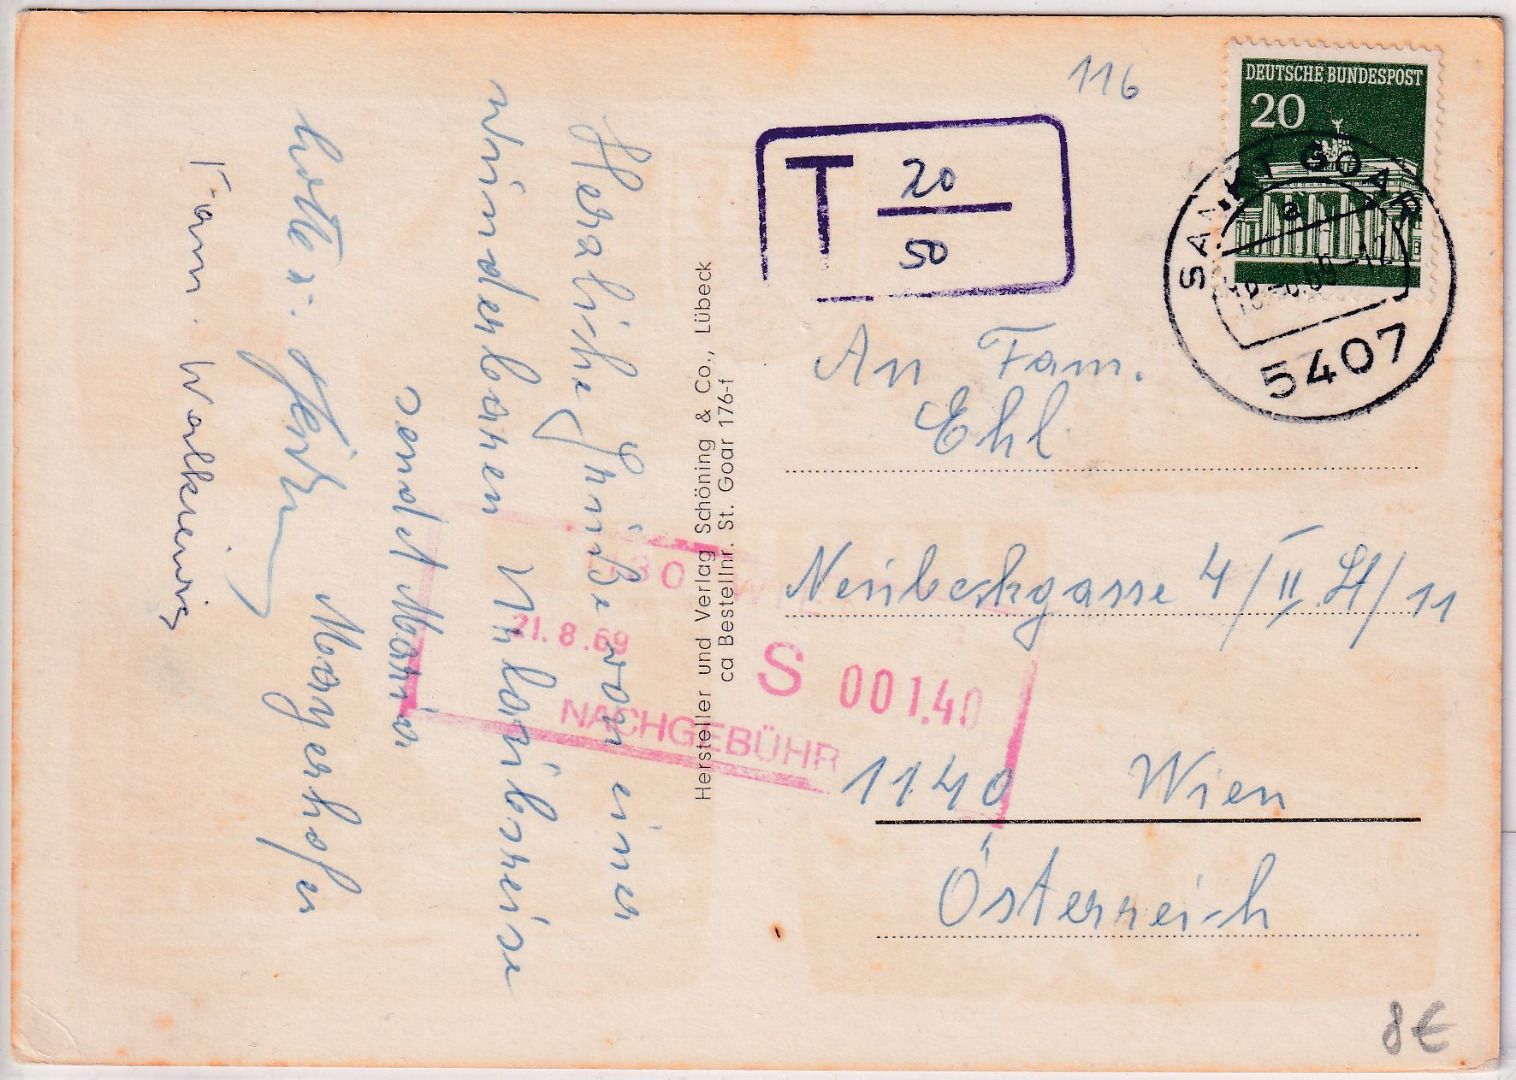 116
DEUTSCHE BUNDESPOST
20
SANKT GOAR
a
5407
T 20
50
An Fam.
Ehl
Neubeckgasse 4/II. St/11
1140 Wien
Österreich
Herzliche Grüße von einer
wunderbaren Urlaubsreise
sendet Maria
Mayerhofer
Fam. Walkewig
Hersteller und Verlag Schöning & Co., Lübeck
ca Bestellnr. St. Goar 176-f
21.8.69
S 001.40
NACHGEBÜHR
8€